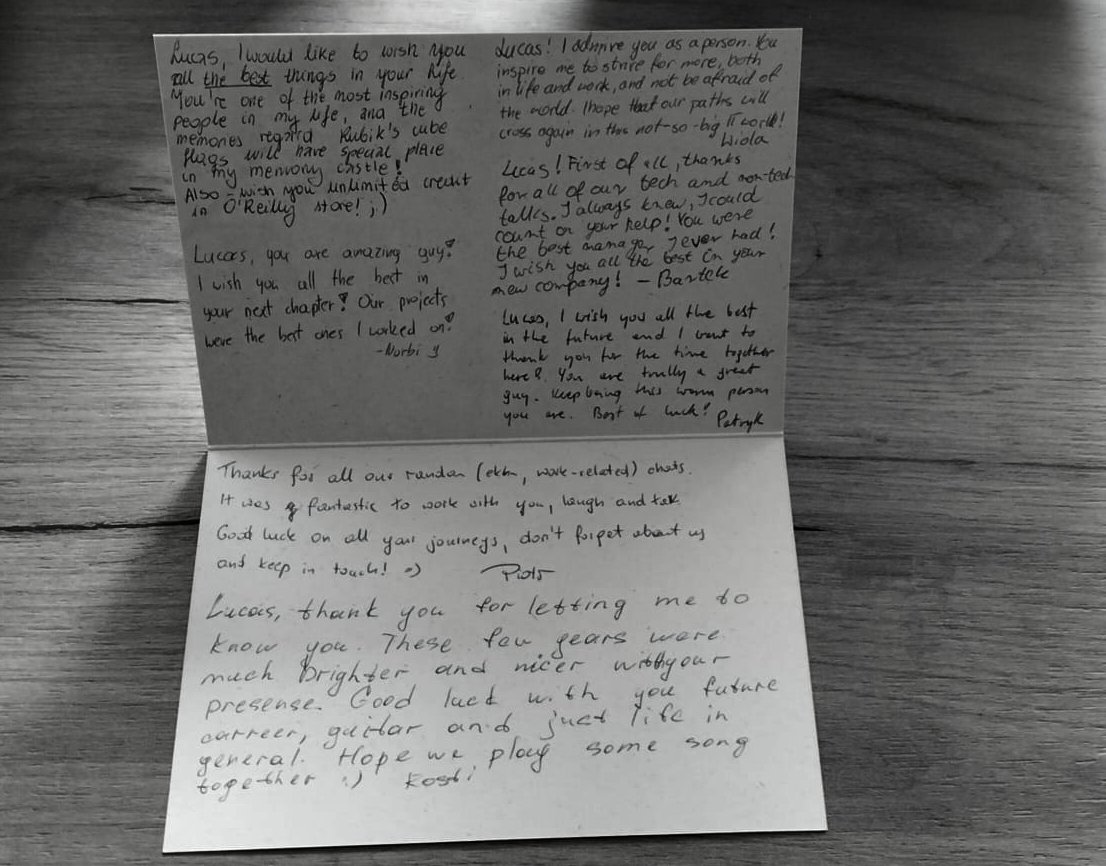 Lucas, I would like to wish you
all the best things in your life.
You're one of the most inspiring
people in my life, and the
memories regard Rubik's cube
flags will have special place
in my memory castle!
Also - wish you unlimited credit
in O'Reilly store! ;)
Lucas, you are amazing guy!
I wish you all the best in
your next chapter! Our projects
were the best ones I worked on!
-Norbi
Lucas! I admire you as a person. You
inspire me to strive for more, both
in life and work, and not be afraid of
the world. I hope that our paths will
cross again in this not-so-big IT world!
Wiola
Lucas! First of all, thanks
for all of our tech and non-tech
talks. I always knew, I could
count on your help! You were
the best manager I ever had!
I wish you all the best in your
new company! - Bartek
Lucas, I wish you all the best
in the future and I want to
thank you for the time together
here!. You are trully a great
guy. Keep being this warm person
you are. Best of luck!
Patryk
Thanks for all our random (ekhm, work-related) chats.
It was fantastic to work with you, laugh and talk.
Good luck on all your journeys, don't forget about us
and keep in touch! =) Piotr
Lucas, thank you for letting me to
know you. These few years were
much brighter and nicer with your
presense. Good luck with you future
carreer, guitar and just life in
general. Hope we play some song
together :) Kosti